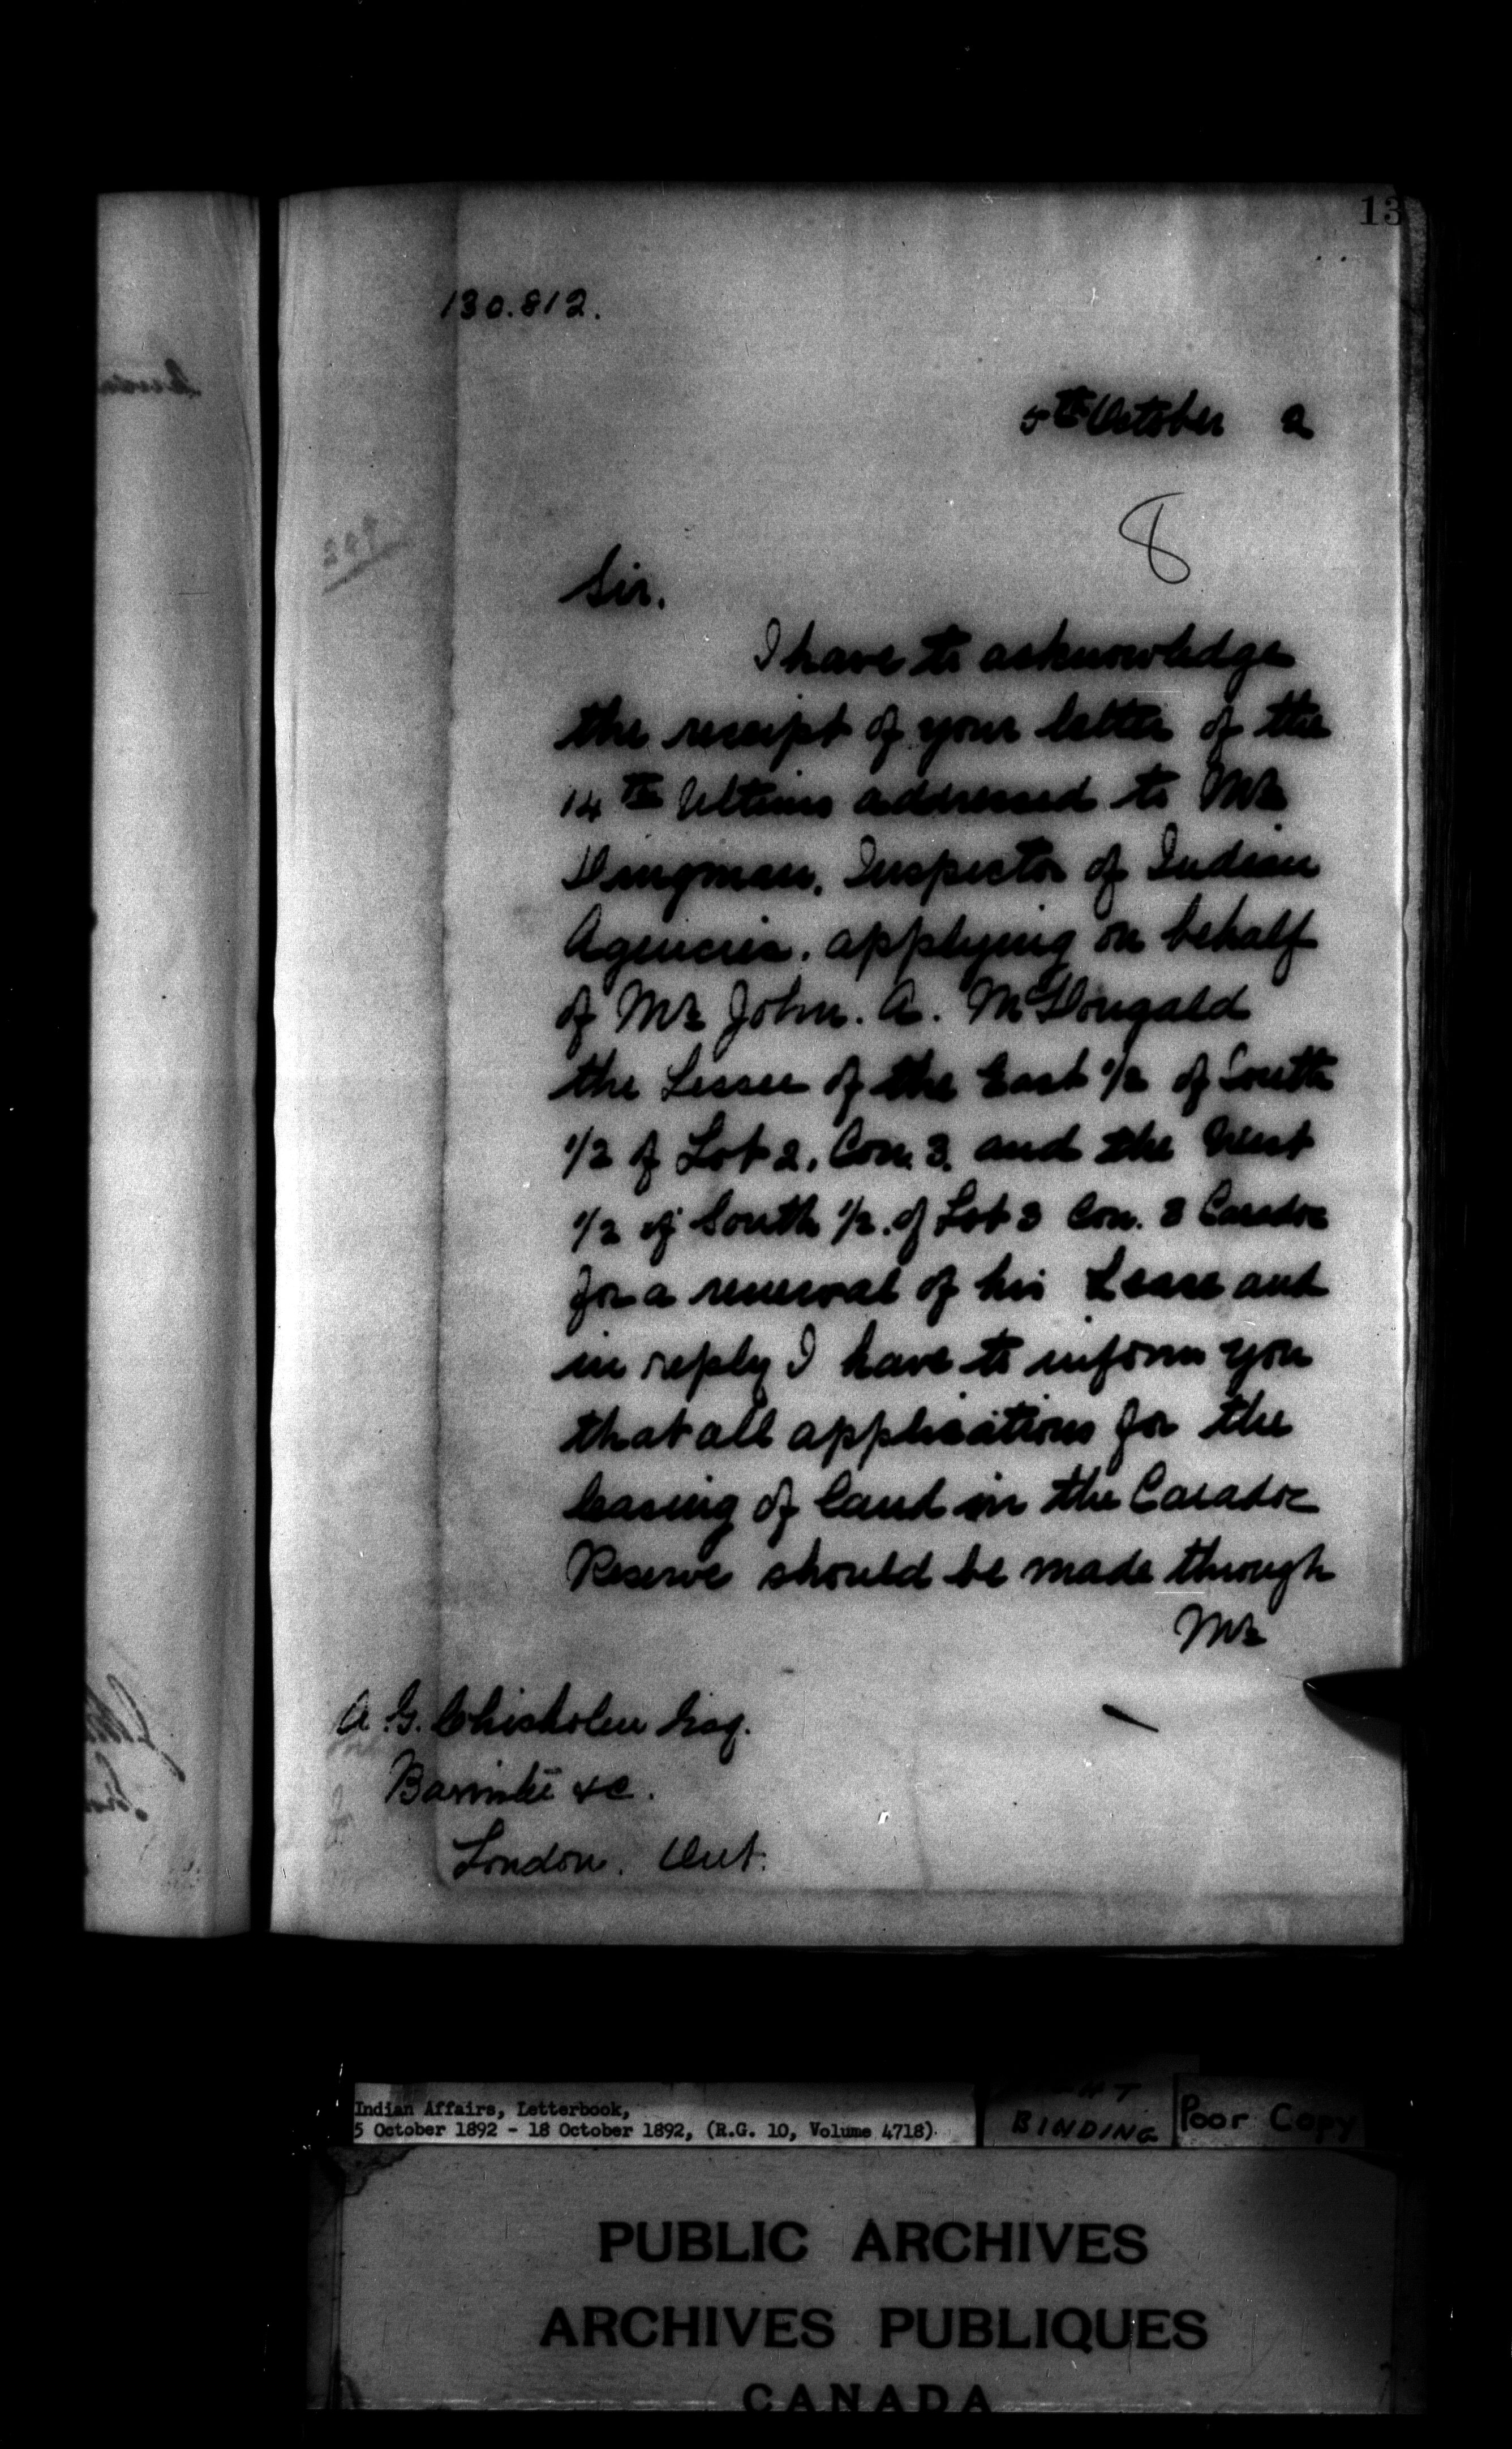 13
130.812.
5th October 2
8
Sir.
I have to acknowledge
the receipt of your letter of the
14th Ultimo addressed to Mr
Dingman, Inspector of Indian
Agencies, applying on behalf
of Mr John. A. McDougald
the Lessee of the East 1/2 of South
1/2 of Lot 2, Con. 3. and the West
1/2 of South 1/2. of Lot 3 Con. 3 Caradoc
for a renewal of his Lease and
in reply I have to inform you
that all applications for the
leasing of land in the Caradoc
Reserve should be made through
Mr
A. G. Chisholm Esq.
Barrister &c.
London. Ont.
Indian Affairs, Letterbook,
5 October 1892 - 18 October 1892, (R.G. 10, Volume 4718)
BINDING
Poor Copy
PUBLIC ARCHIVES
ARCHIVES PUBLIQUES
CANADA